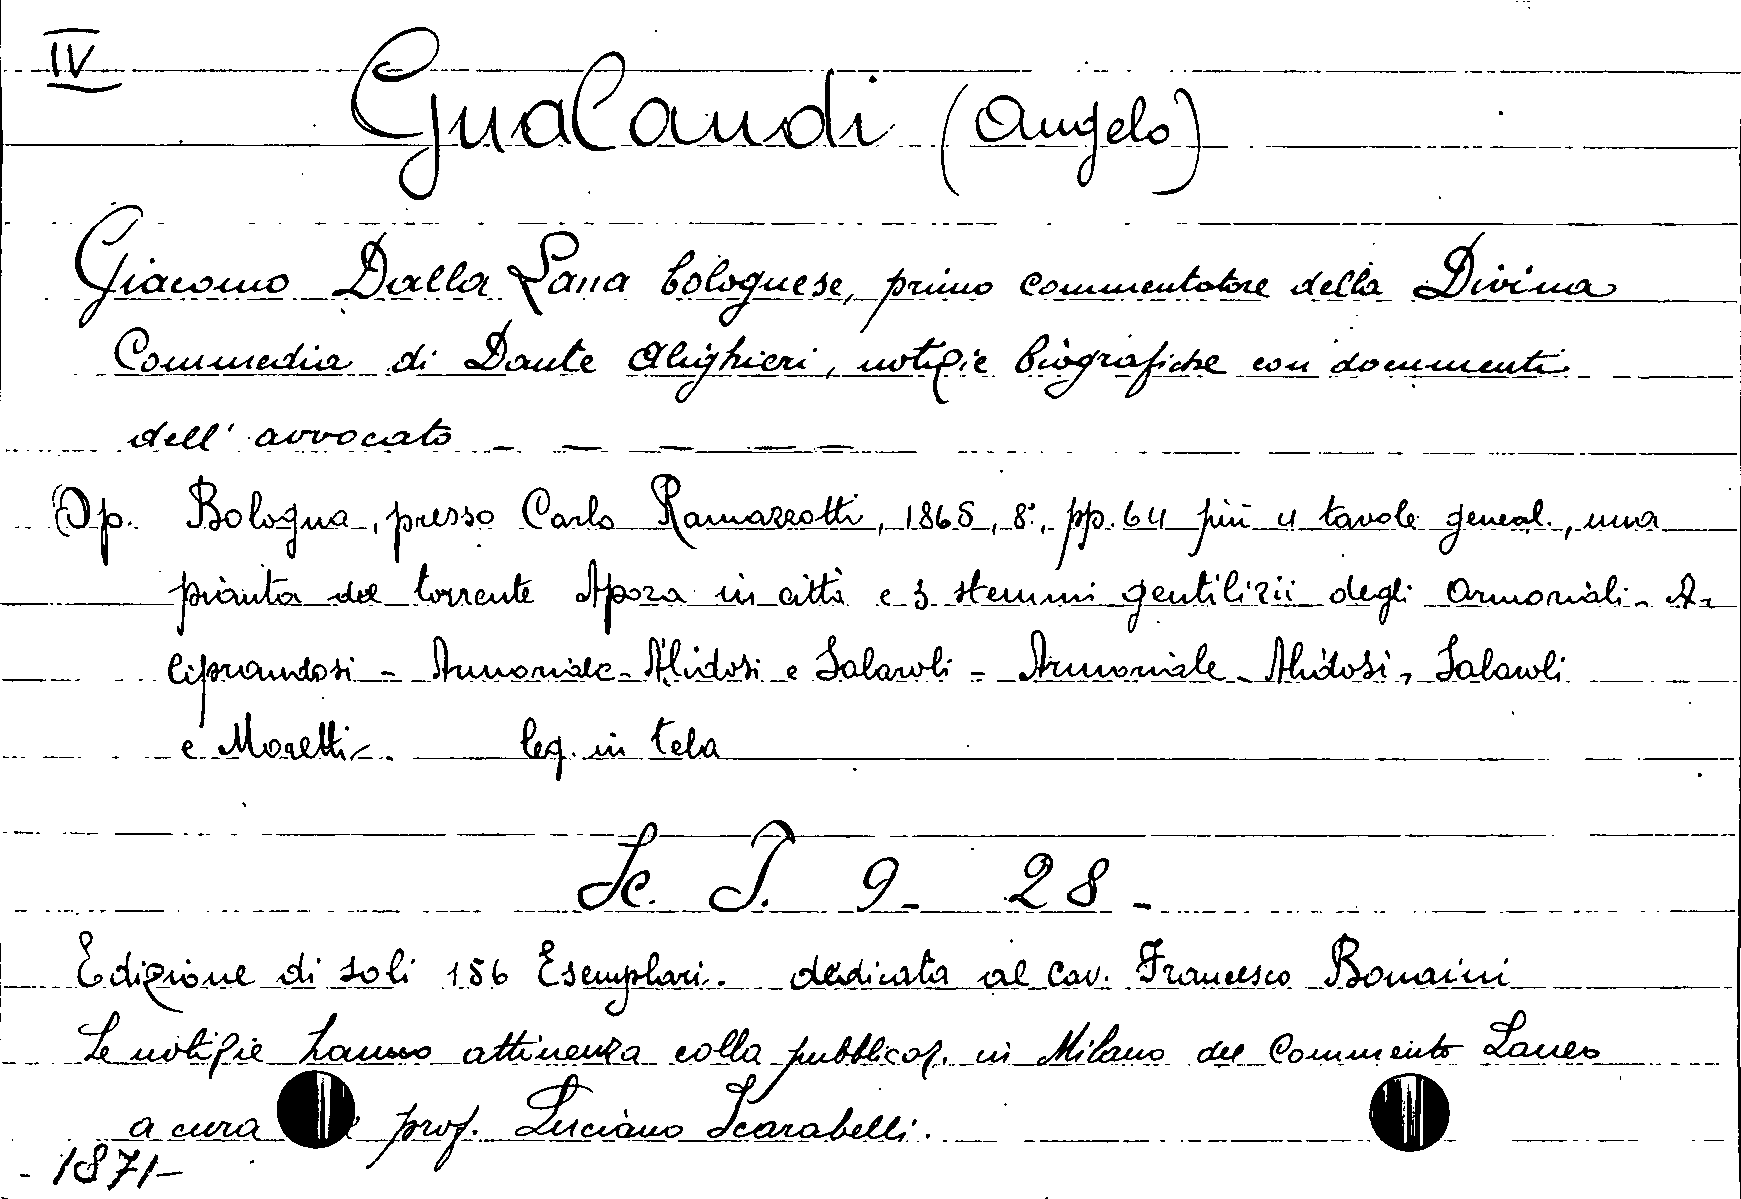 IV
Gualandi (Angelo)
Giacomo Dalla Lana bolognese, primo commentatore della Divina
Commedia di Dante Alighieri, notizie biografiche con documenti
dell' avvocato _ _ _ _ _
Op. Bologna, presso Carlo Ramazzotti, 1865, 8°, pp. 64 più 4 tavole geneal., una
pianta del torrente Aposa in città e 3 stemmi gentilizii degli Armoriali - A-
liprandosi - Armoriale - Alidosi e Salaroli - Armoriale - Alidosi, Salaroli
e Moretti -. leg. in tela
Sc. T. 9 - 28 -
Edizione di soli 156 Esemplari. dedicata al cav. Francesco Bonaini
Le notizie hanno attinenza colla pubblicaz. in Milano del Commento Laneo
a cura prof. Luciano Scarabelli.
- 1871 -